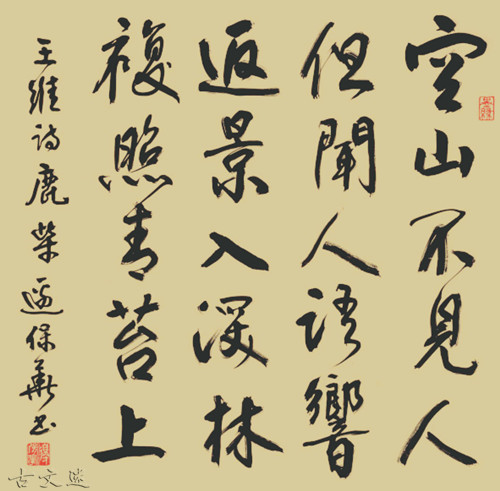 空山不見人
但聞人語響
返景入深林
複照青苔上
王維詩鹿柴邊保華書
古文迷